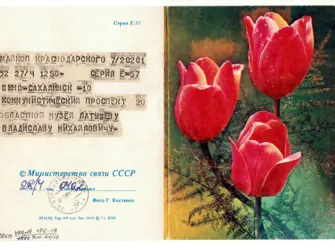 Серия Е-57
МАЙКОП КРАСНОДАРСКОГО 7/20201
32 27/4 1250= СЕРИЯ Е=57
ЮЖНО=САХАЛИНСК =10
КОММУНИСТИЧЕСКИЙ ПРОСПЕКТ 20
ОБЛАСТНОЙ МУЗЕЙ ЛАТЫШЕВУ
ВЛАДИСЛАВУ МИХАЙЛОВИЧУ=
© Министерство связи СССР
28/4 0402
Фото Г. Костенко